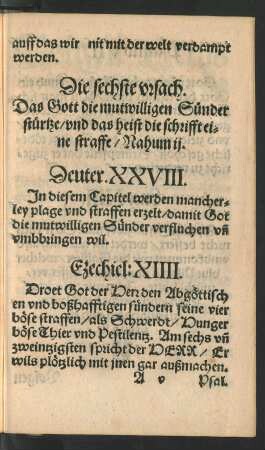 auff das wir nit mit der welt verdampt
werden.
Die sechste vrsach.
Das Gott die mutwilligen Sünder
stürtze/vnd das heist die schrifft ei-
ne straffe/Nahum ij.
Deuter. XXVIII.
In diesem Capitel werden mancher-
ley plage vnd straffen erzelt/damit Got
die mutwilligen Sünder verfluchen vñ
vmbbringen wil.
Ezechiel: XIIII.
Droet Got der Herr den Abgöttisch
en vnd boßhafftigen sündern seine vier
böse straffen/als Schwerdt/Hunger
böse Thier vnd Pestilentz. Am sechs vñ
zweintzigsten spricht der HERR/Er
wils plötzlich mit jnen gar außmachen.
A v Psal.